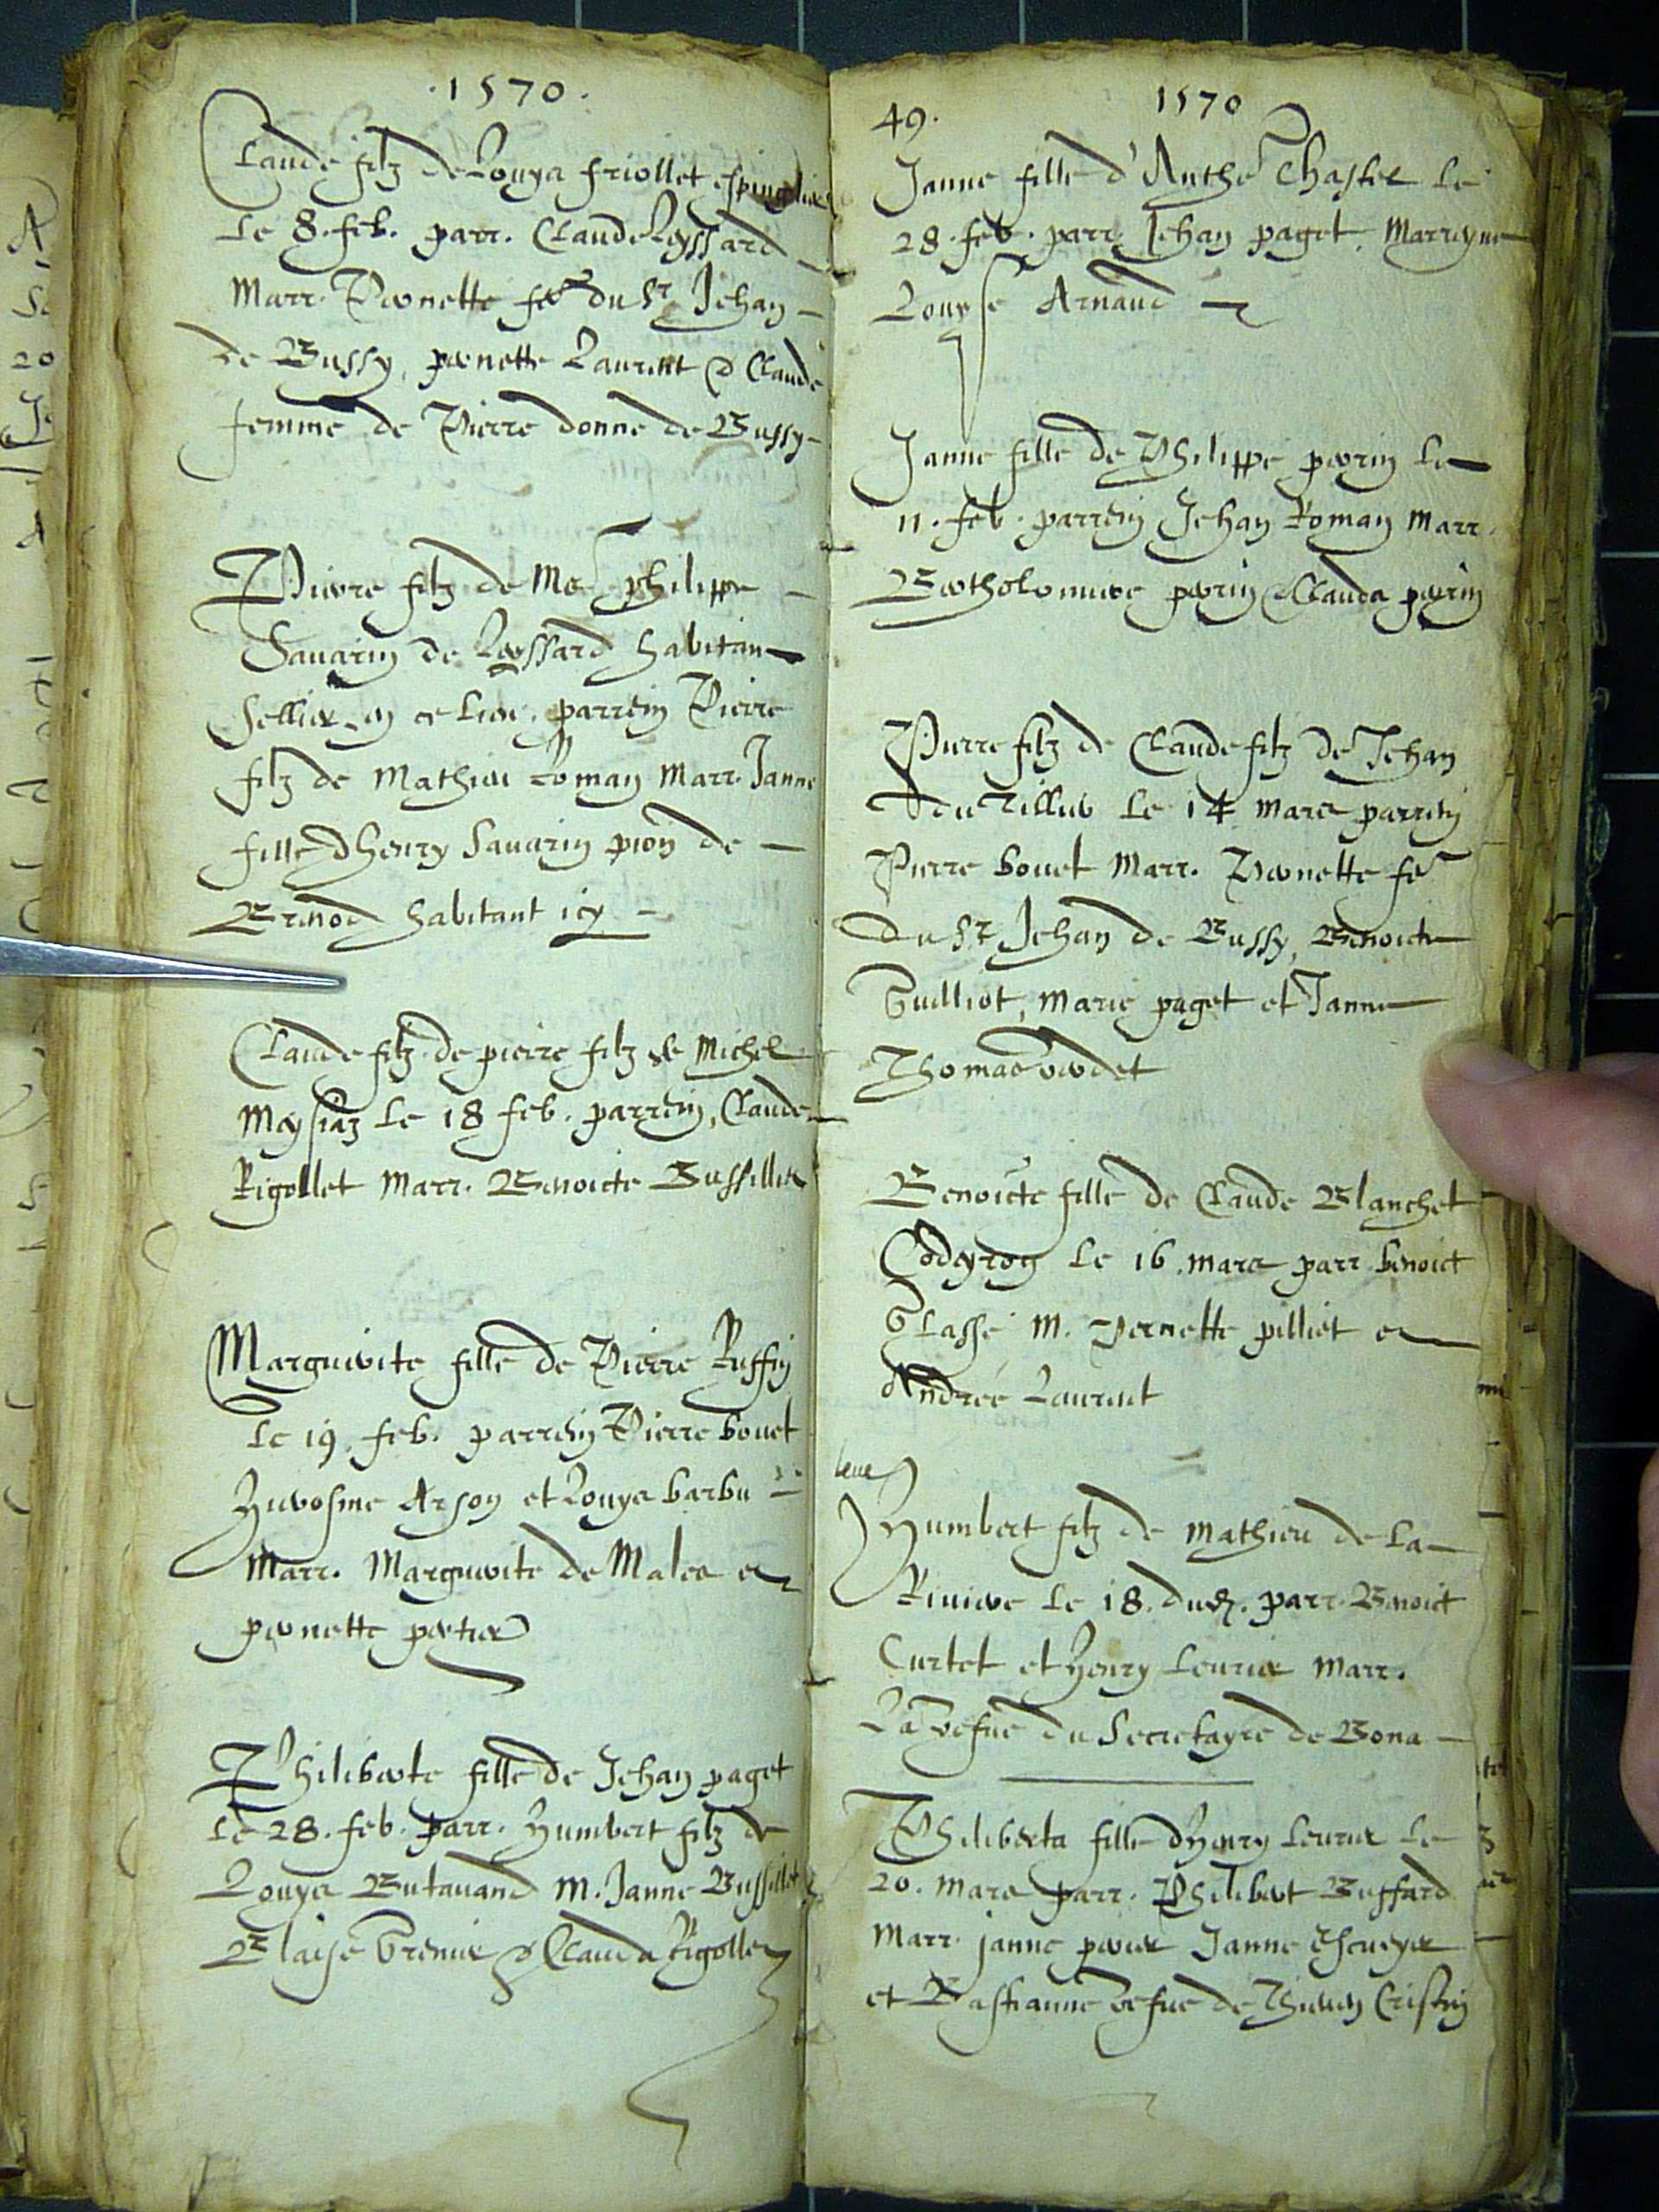 .1570.
Claude filz de Louys friollet espinglier
Le 8. feb. parr. Claude Leyssard
Marr. Pernette fe du Sr Jehan
de Bussy, pernette Laurent & Claude
femme de Pierre donne de Bussy
Pierre filz de Me philippe
Savarin de Leyssard habitan
Sellier en ce lieu, parrein Pierre
filz de Mathieu Roman Marr. Janne
fille d'henry Savarin pion de
Brenod habitant icy
Claude filz de pierre filz de Michel
Meysiaz Le 18 feb. parrein, Claude
Rigollet Marr. Benoicte Bussillet
Marguerite fille de Pierre Ruffin
Le 19. feb. parrein Pierre bouet
Hierosme Arson et Louys barbu
Marr. Marguerite de Males et
pernette pertier
Philiberte fille de Jehan paget
Le 28. feb. parr. Humbert filz de
Louys Butavand M. Janne Bussillet
Blaise Grenier & Clauda Rigollet
49.
1570
Janne fille d'Anthe Chastel le
28. feb. parr. Jehan paget. Marreyne
Louyse Arnaud
Janne fille de Philippe perrin le
11. feb. parrein Jehan Roman Marr.
Bartholomiere perrin Clauda perrin
Pierre filz de Claude filz de Jehan
du Tillier Le 14 mars parrein
Pierre bouet Marr. Pernette fe
du Sr Jehan de Bussy, Benoicte
Guilliot, Marie paget et Janne
Thomas verdet
Benoicte fille de Claude Blanchet
Le 16. mars parr. benoict
Glasse M. Pernette pilliet et
Andree Laurent
Humbert filz de Mathieu de La
Riviere Le 18. dud. parr. Benoict
Curtet et Henry Leurier Marr.
La vefue du Secretayre de Bona
Philiberta fille d'Henry Leurier Le
20. Mars parr. Philibert Buffard
Marr. janne perier Janne Escuyer
et Bastianne vefue de Thieven Cristin